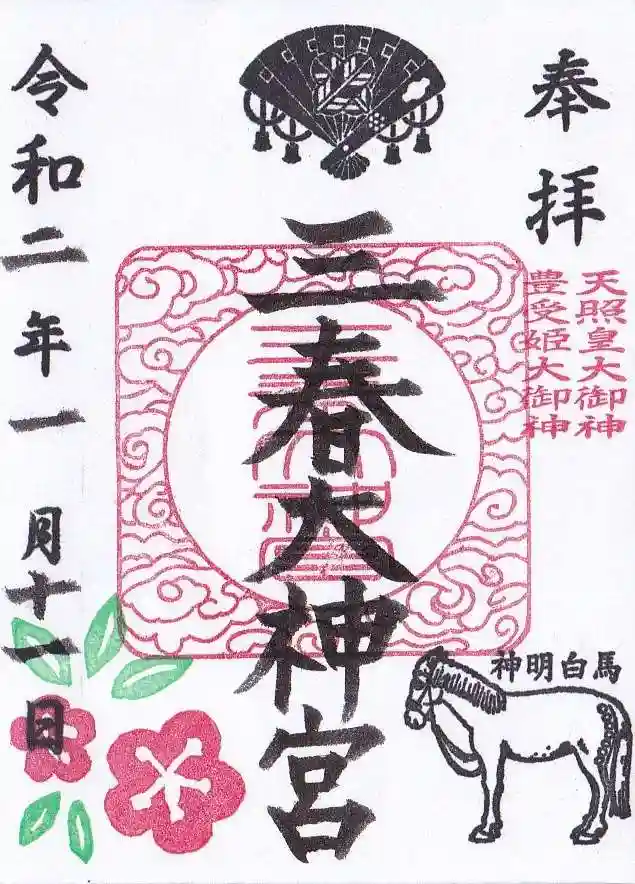 奉拝
天照皇大御神
豊受姫大御神
三春大神宮
三春大神宮
令和二年一月十一日
神明白馬